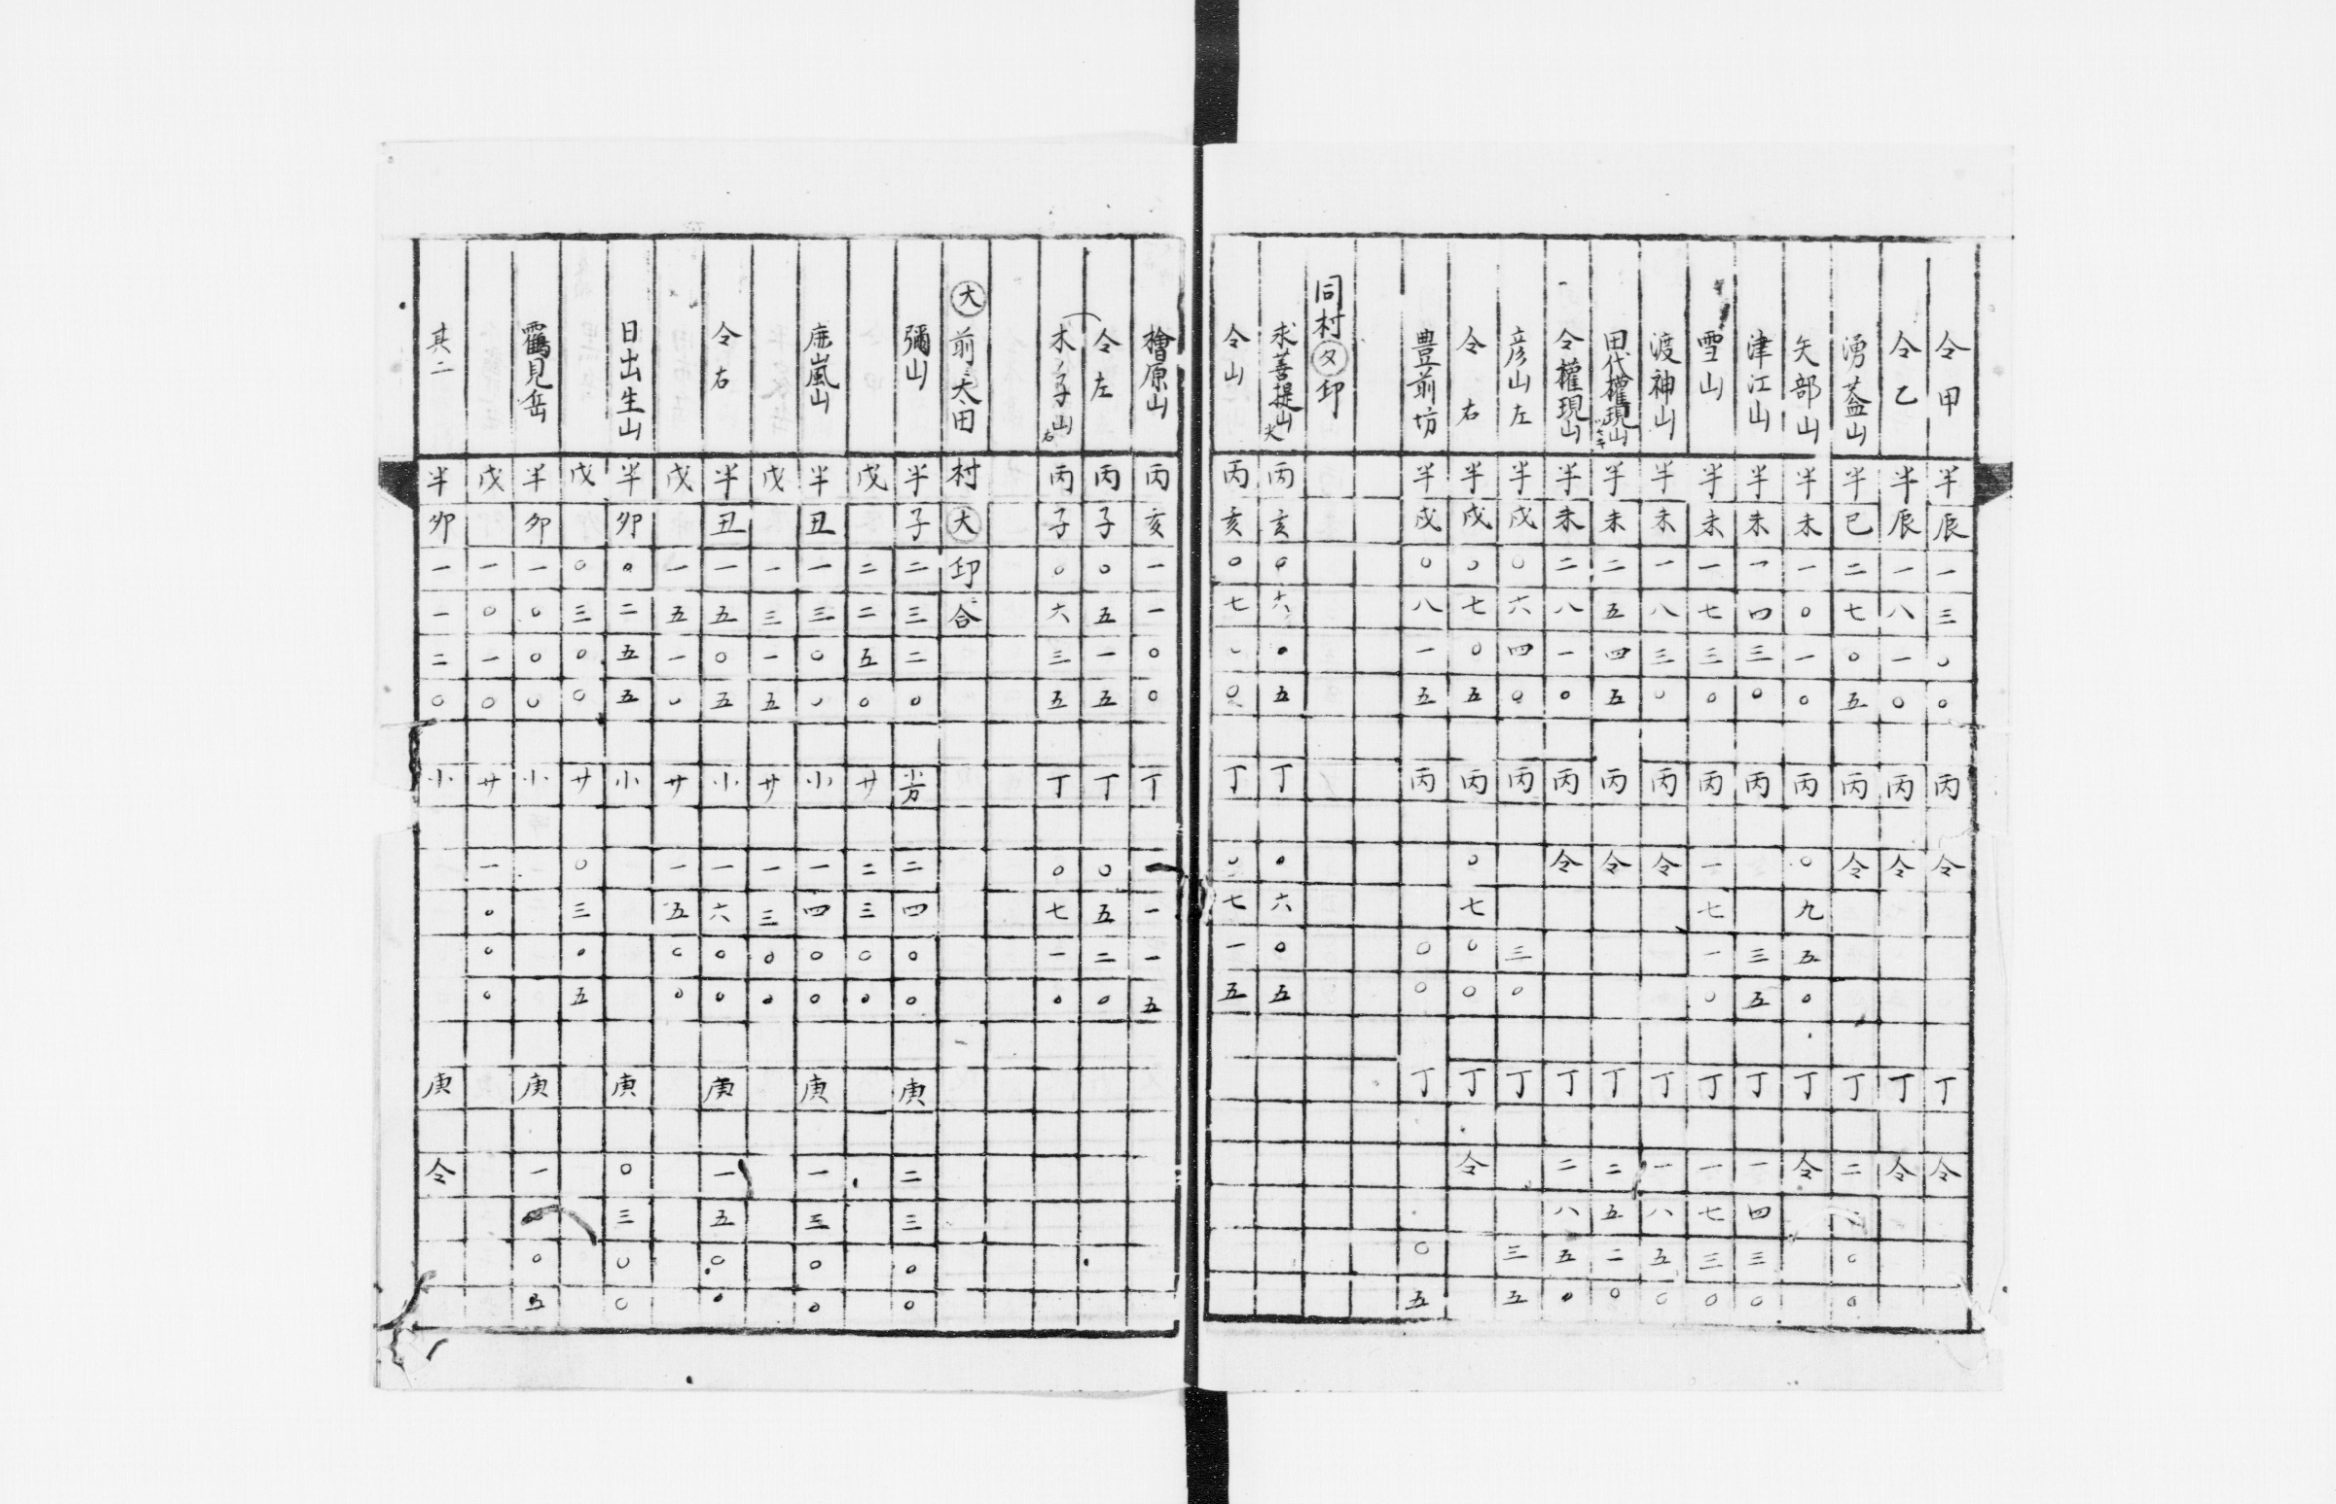 令甲 半辰一三〇〇 丙 令 丁 令
令乙 半辰一八一〇 丙 令 丁 令
湧蓋山 半巳二七〇五 丙 令 丁 二 〇〇
矢部山 半未一〇一〇 丙 〇九五〇 丁 令
津江山 半未一四三〇 丙 三五 丁 一四三〇
雪山 半未一七三〇 丙 一七一〇 丁 一七三〇
渡神山 半未一八三〇 丙 令 丁 一八五〇
田代權現山 半未二五四五 丙 令 丁 二五二〇
令權現山 半未二八一〇 丙 令 丁 二八五〇
彦山左 半戌〇六四〇 丙 三〇 丁 三五
令右 半戌〇七〇五 丙 〇七〇〇 丁 令
豊前坊 半戌〇八一五 丙 〇〇 丁 〇五
同村㋟印
求菩提山大 丙亥〇六〇五 丁 〇六〇五
令山 丙亥〇七〇〇 丁 〇七一五
檜原山 丙亥一一〇〇 丁 一一一五
令左 丙子〇五一五 丁 〇五二〇
木ノ子山右 丙子〇六三五 丁 〇七一〇
大 前大田村 大 印合
彌山 半子二三二〇 小方 二四〇〇 庚 二三〇〇
戊 二二五〇 廿 二三〇〇
鹿嵐山 半丑一三〇〇 小 一四〇〇 庚 一三〇〇
戊 一三一五 廿 一三〇〇
令右 半丑一五〇五 小 一六〇〇 庚 一五〇〇
戊 一五一〇 廿 一五〇〇
日出生山 半卯〇二五五 小 庚 〇三〇〇
戊 〇三〇〇 廿 〇三〇五
靏見岳 半卯一〇〇〇 小 庚 一〇〇五
戊 一〇一〇 廿 一〇〇〇
其二 半卯一一二〇 小 庚 令